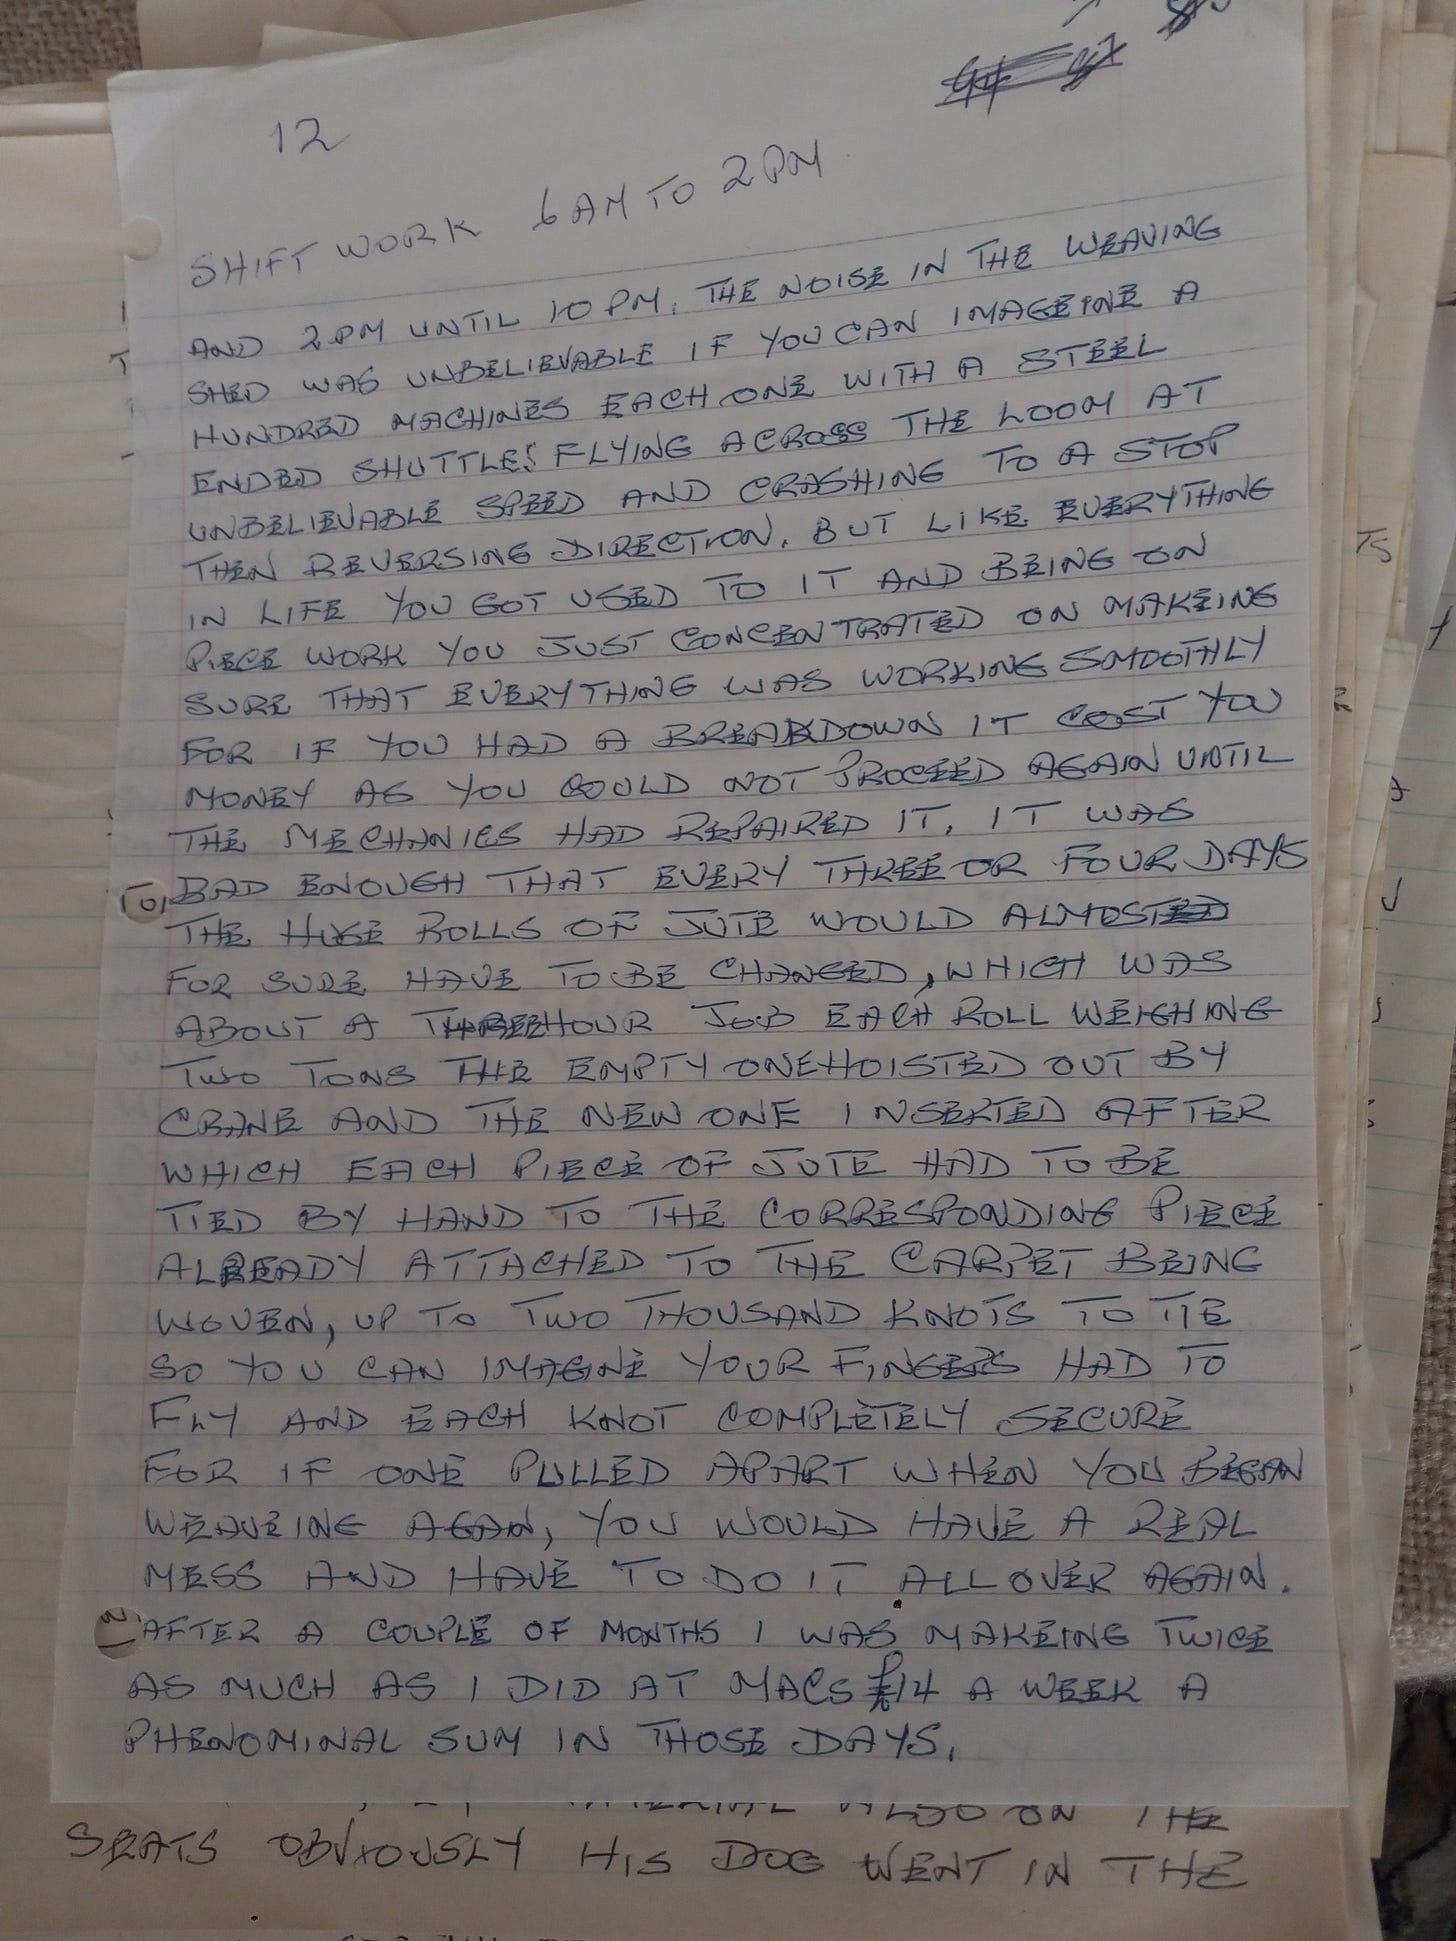 12
SHIFT WORK 6AM TO 2PM
AND 2.PM UNTIL 10PM. THE NOISE IN THE WEAVING
SHED WAS UNBELIEVABLE IF YOU CAN IMAGEINE A
HUNDRED MACHINES EACH ONE WITH A STEEL
ENDED SHUTTLE! FLYING ACROSS THE LOOM AT
UNBELIEVABLE SPEED AND CRASHING TO A STOP
THEN REVERSING DIRECTION. BUT LIKE EVERYTHING
IN LIFE YOU GOT USED TO IT AND BEING ON
PIECE WORK YOU JUST CONCENTRATED ON MAKEING
SURE THAT EVERYTHING WAS WORKING SMOOTHLY
FOR IF YOU HAD A BREAKDOWN IT COST YOU
MONEY AS YOU COULD NOT PROCEED AGAIN UNTIL
THE MECHANICS HAD REPAIRED IT. IT WAS
BAD ENOUGH THAT EVERY THREE OR FOUR DAYS
THE HUGE ROLLS OF JUTE WOULD ALMOST
FOR SURE HAVE TO BE CHANGED, WHICH WAS
ABOUT A THREE HOUR JOB EACH ROLL WEIGHING
TWO TONS THE EMPTY ONE HOISTED OUT BY
CRANE AND THE NEW ONE INSERTED AFTER
WHICH EACH PIECE OF JUTE HAD TO BE
TIED BY HAND TO THE CORRESPONDING PIECE
ALREADY ATTACHED TO THE CARPET BEING
WOVEN, UP TO TWO THOUSAND KNOTS TO TIE
SO YOU CAN IMAGINE YOUR FINGERS HAD TO
FLY AND EACH KNOT COMPLETELY SECURE
FOR IF ONE PULLED APART WHEN YOU BEGAN
WEAVEING AGAIN, YOU WOULD HAVE A REAL
MESS AND HAVE TO DO IT ALL OVER AGAIN.
AFTER A COUPLE OF MONTHS I WAS MAKEING TWICE
AS MUCH AS I DID AT MACS £14 A WEEK A
PHENOMINAL SUM IN THOSE DAYS.
MATERIAL ALSO ON THE
SEATS OBVIOUSLY HIS DOG WENT IN THE